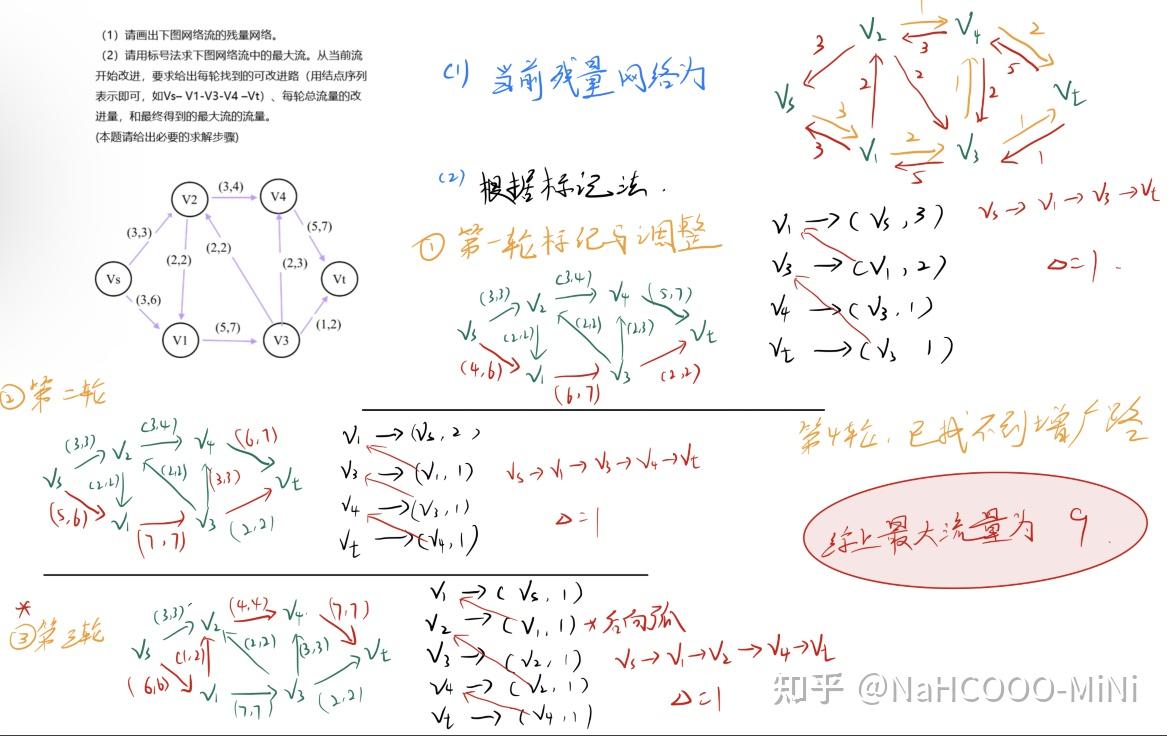 (1)请画出下图网络流的残量网络。
(2)请用标号法求下图网络流中的最大流。从当前流
开始改进,要求给出每轮找到的可改进路(用结点序列
表示即可,如Vs– V1-V3-V4 –Vt)、每轮总流量的改
进量,和最终得到的最大流的流量。
(本题请给出必要的求解步骤)
V2
(3,4)
V4
(3,3)
(2,2)
(2,2)
(2,3)
(5,7)
Vs
Vt
(3,6)
(1,2)
V1
(5,7)
V3
(1) 当前残量网络为
V2
1
3
V4
3
2
2
1
2
2
5
Vs
Vt
3
3
V1
2
5
V3
1
1
(2) 根据标记法.
① 第一轮标记与调整
(3,3)
V2
(3,4)
V4
(5,7)
Vs
(2,2)
(2,2)
(2,3)
Vt
(4,6)
V1
(6,7)
V3
(2,2)
V1 → (Vs, 3)
V3 → (V1, 2)
V4 → (V3, 1)
Vt → (V3 1)
Vs → V1 → V3 → Vt
Δ=1.
② 第二轮
(3,3)
V2
(3,4)
V4
(6,7)
Vs
(2,2)
(2,2)
(3,3)
Vt
(5,6)
V1
(7,7)
V3
(2,2)
V1 → (Vs, 2)
V3 → (V1, 1)
V4 → (V3, 1)
Vt → (V4, 1)
Vs → V1 → V3 → V4 → Vt
Δ=1
第4轮,已找不到增广路
综上最大流量为 9.
*
③ 第三轮
(3,3)
V2
(4,4)
V4
(7,7)
Vs
(1,2)
(2,2)
(3,3)
Vt
(6,6)
V1
(7,7)
V3
(2,2)
V1 → (Vs, 1)
V2 → (V1, 1) *后向弧
V3 → (V2, 1)
V4 → (V2, 1)
Vt → (V4, 1)
Vs → V1 → V2 → V4 → Vt
Δ=1
知乎 @NaHCOOO-MiNi